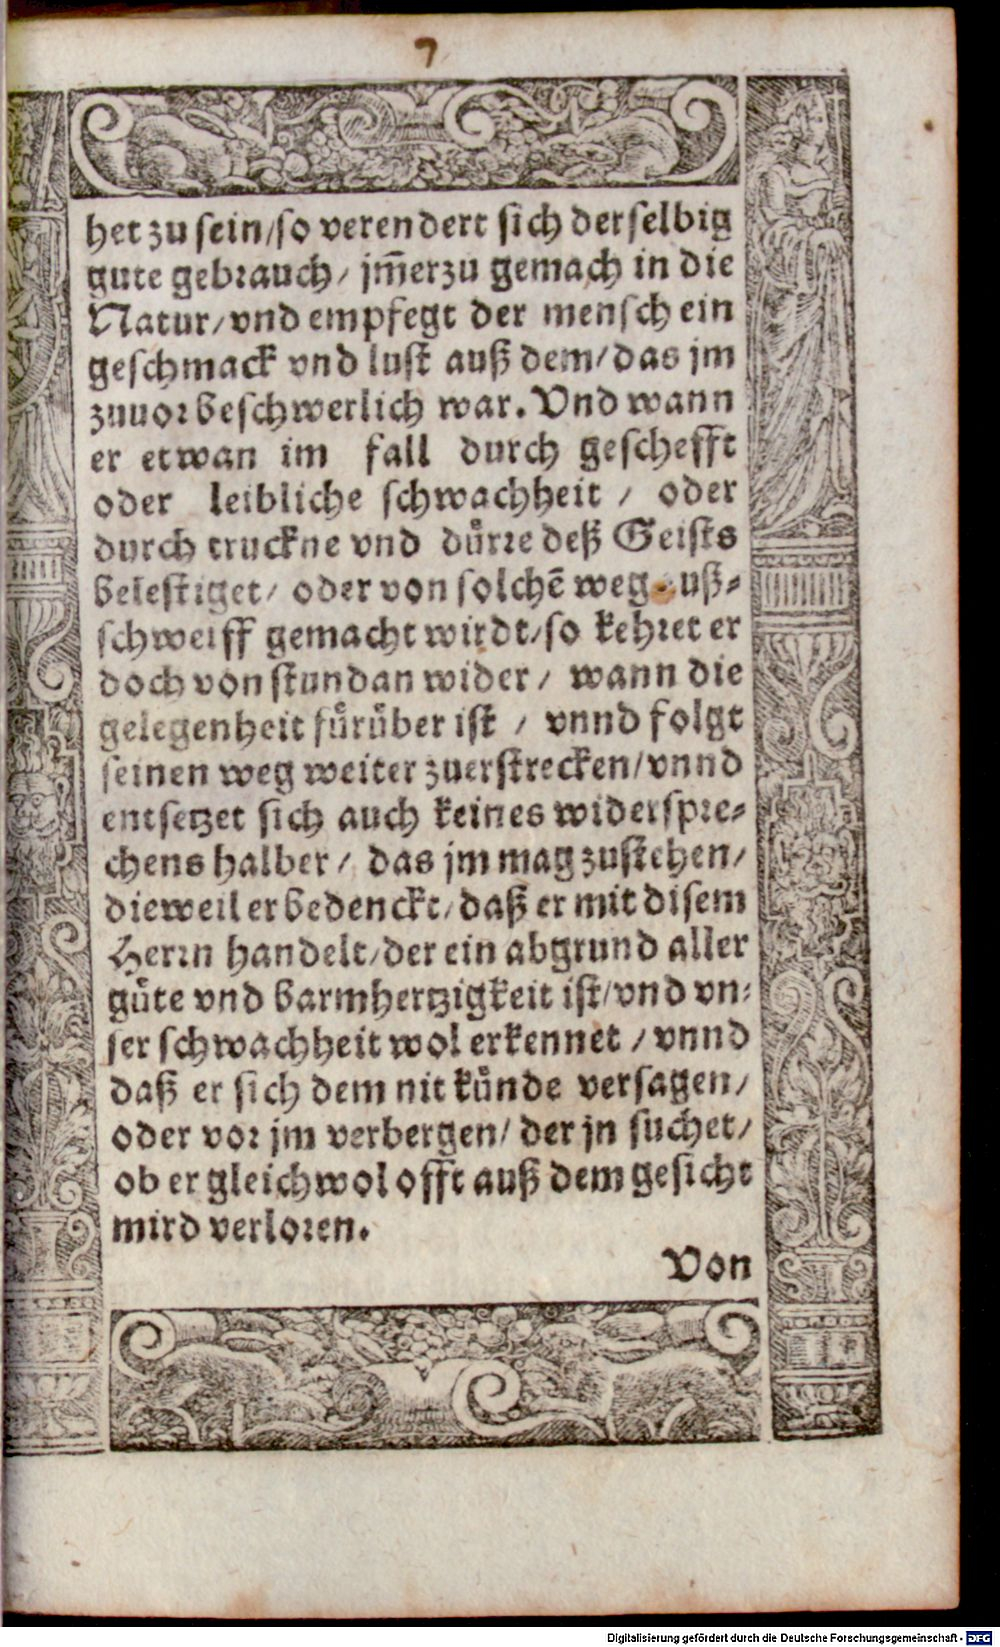 7
het zu sein/so verendert sich derselbig
gute gebrauch/ jm̃erzu gemach in die
Natur/vnd empfegt der mensch ein
geschmack vnd lust auß dem/das jm
zuuor beschwerlich war. Vnd wann
er etwan im fall durch geschefft
oder leibliche schwachheit / oder
durch truckne vnd dürre deß Geists
belestiget/ oder von solchẽ weg uß-
schweiff gemacht wirdt/so kehret er
doch von stundan wider / wann die
gelegenheit fürüber ist / vnnd folgt
seinen weg weiter zuerstrecken/vnnd
entsetzet sich auch keines widerspre-
chens halber / das jm mag zustehen/
dieweil er bedenckt/daß er mit disem
Herrn handelt/der ein abgrund aller
güte vnd barmhertzigkeit ist/vnd vn-
ser schwachheit wol erkennet / vnnd
daß er sich dem nit künde versagen/
oder vor jm verbergen/ der jn suchet/
ob er gleichwol offt auß dem gesicht
wird verloren.
Von
Digitalisierung gefördert durch die Deutsche Forschungsgemeinschaft - DFG